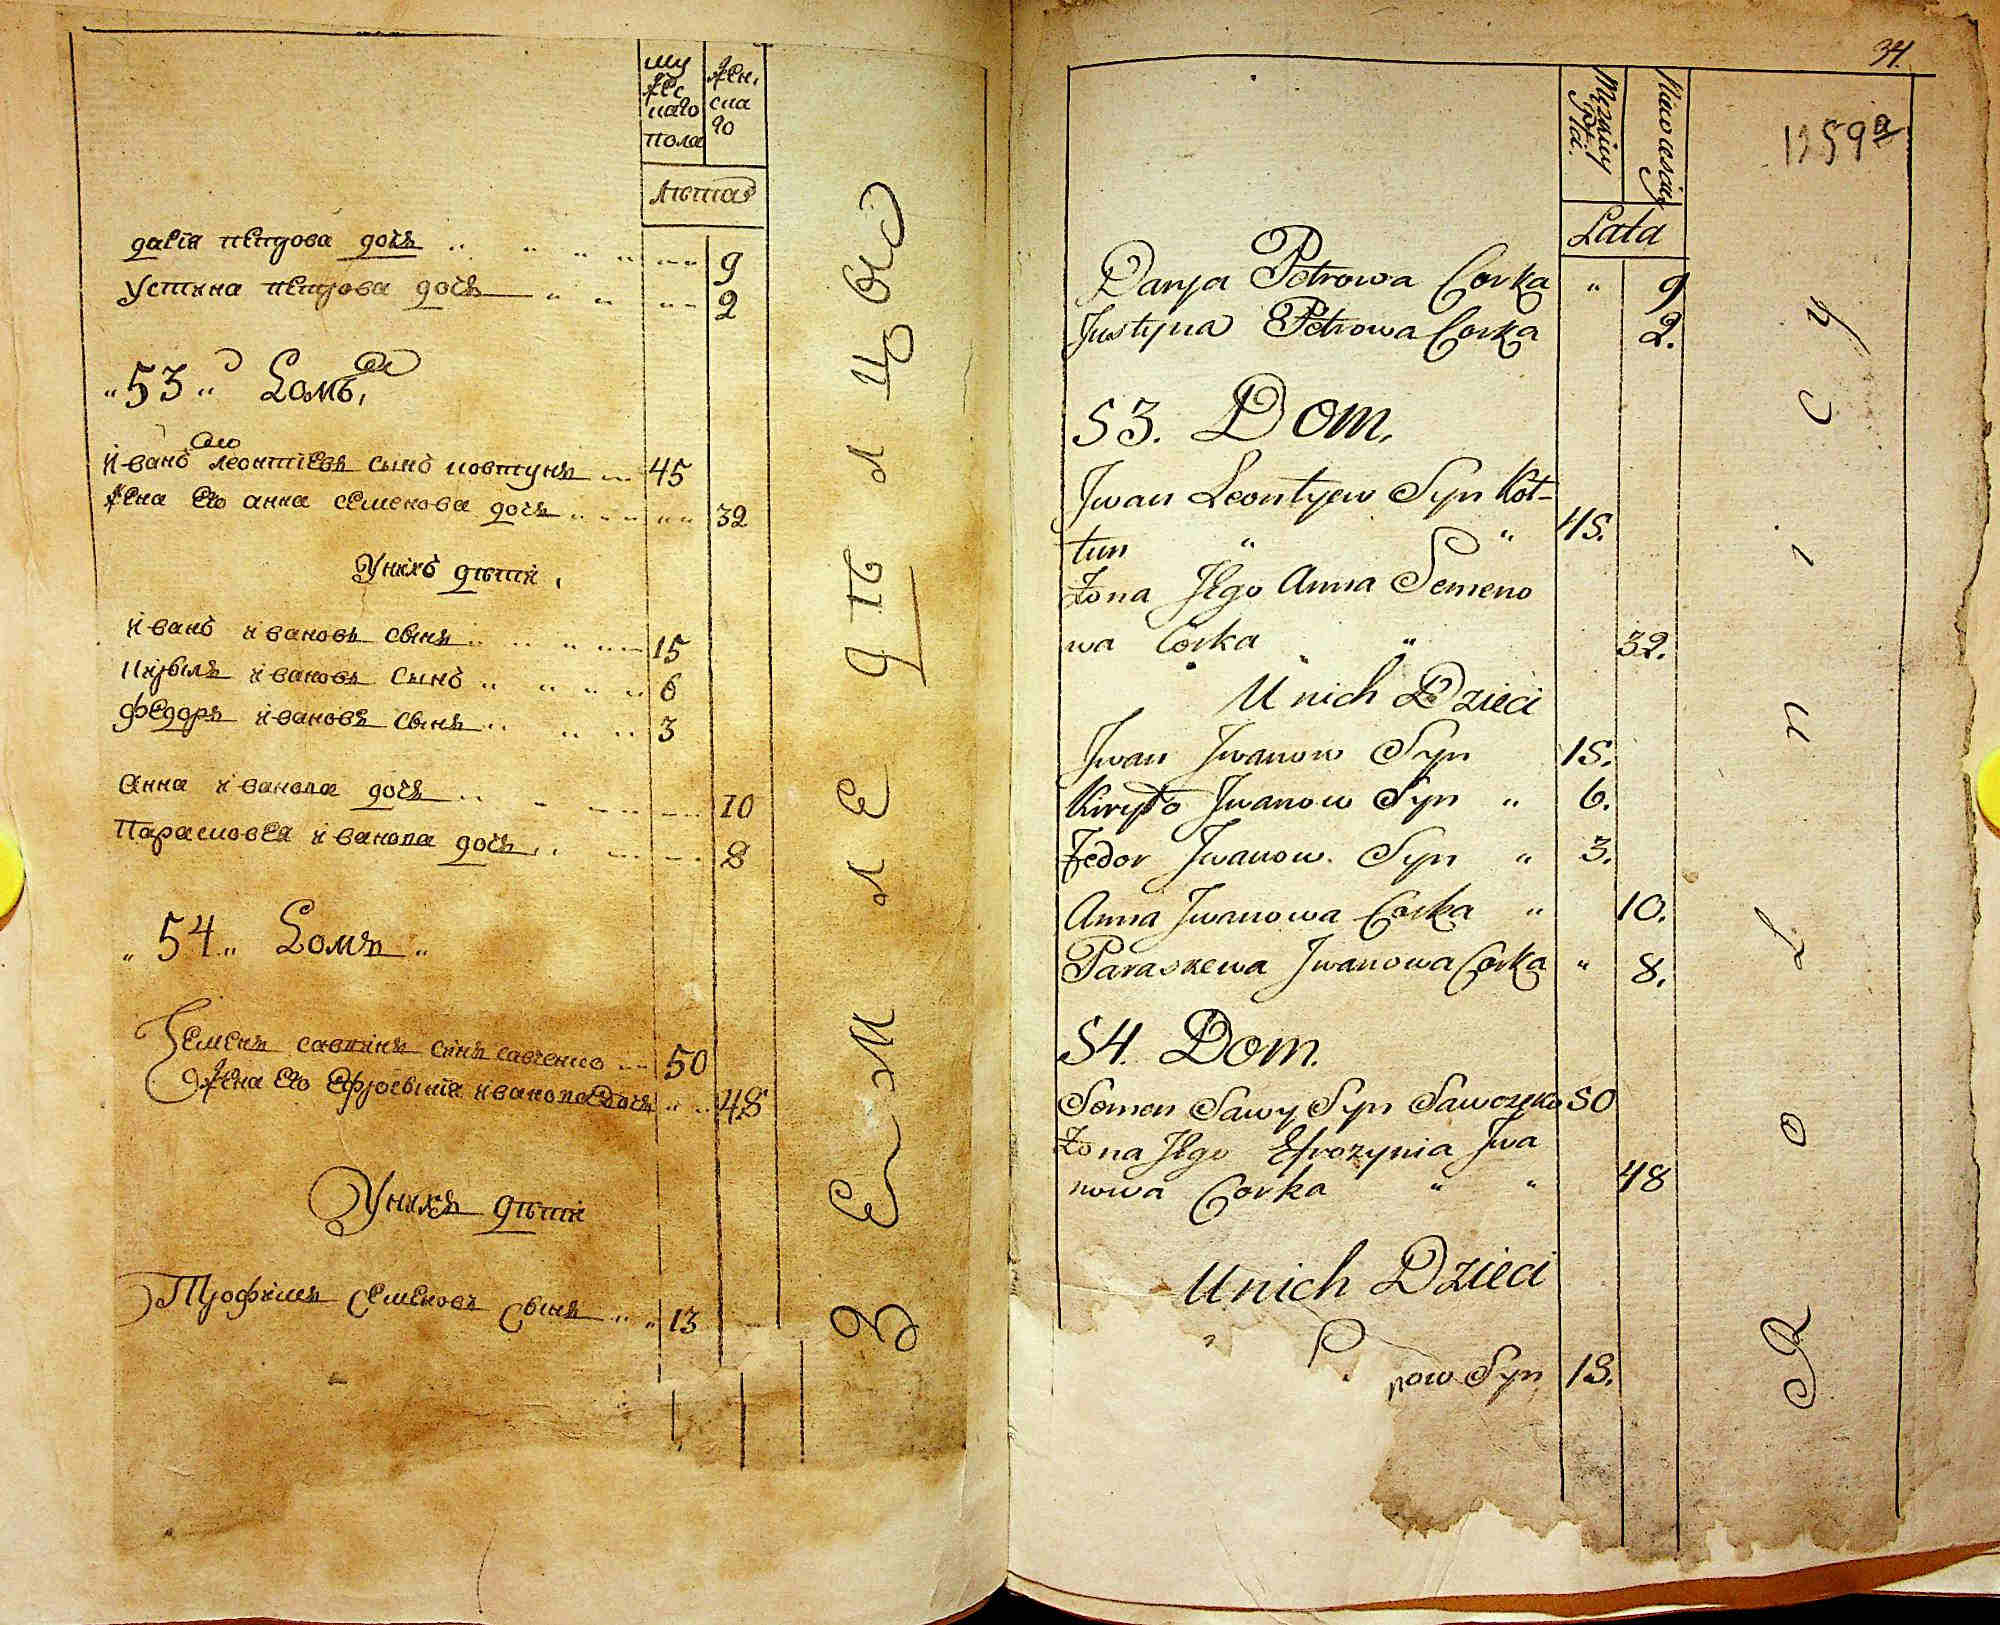 му
жес
каго
пола
жен,
ска
го
лѣта
дарїя петрова дочь 9
устина петрова дочь 2
53 Домъ,
иванъ леонтїевъ сынъ ковтунъ 45
жена его анна семенова дочь 32
у нихъ дѣти,
иванъ ивановъ сынъ 15
кирылъ ивановъ сынъ 6
федоръ ивановъ сынъ 3
анна иванова дочь 10
парасковея иванова дочь 8
54 Домъ
Семенъ саввинъ синъ савченко 50
жена его ефросынїя иванова дочь 48
у нихъ дѣти
Трофимъ Семеновъ Сынъ 13
земледѣлцовъ
34.
1159a
Mezkiey
Płci.
Niewesciey
Lata
Darya Petrowa Corka " 9
Justyna Petrowa Corka 2.
53. Dom.
Jwan Leontyew Syn Kot-
tun " " 45.
Żona Jego Anna Semeno
wa Corka " 32.
Unich Dzieci
Jwan Jwanow Syn 15.
Kiryło Jwanow Syn " 6.
Fedor Jwanow Syn " 3.
Anna Jwanowa Corka " 10.
Paraskewa Jwanowa Corka " 8.
54. Dom.
Semen Sawy Syn Sawczenko 50
Żona Jego Efrozynia Jwa
nowa Corka " " 48
Unich Dzieci
now Syn 13.
Rolnicy